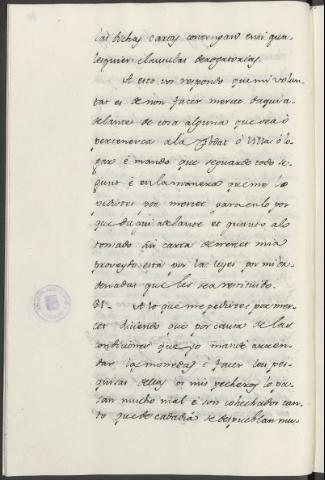 las dichas cartas contengan en si qua-
lesquier clausulas derogatorias.
A esto vos respondo que mi volun-
tat es de non facer mercet daqui a-
delante de cosa alguna que sea ó
pertenezca a la Cibdat ó Villa ó lo-
gar é mando que se guarde todo se-
gunt é en la manera que me lo
pedistes por mercet para en lo por
que daqui adelante et quanto a lo
tomado sin carta de mercet mia
proveydo está por las leyes por mi or-
denadas que les sea restituido.
31.- A lo que me pedistes por mer-
cet diciendo que por causa de las
condiciones que yo mandé arren-
dar las monedas é facer las pes-
quisas dellas os mis pecheros lo pa-
san mucho mal é son cohechados tan-
to que de cadadia se despueblan mus